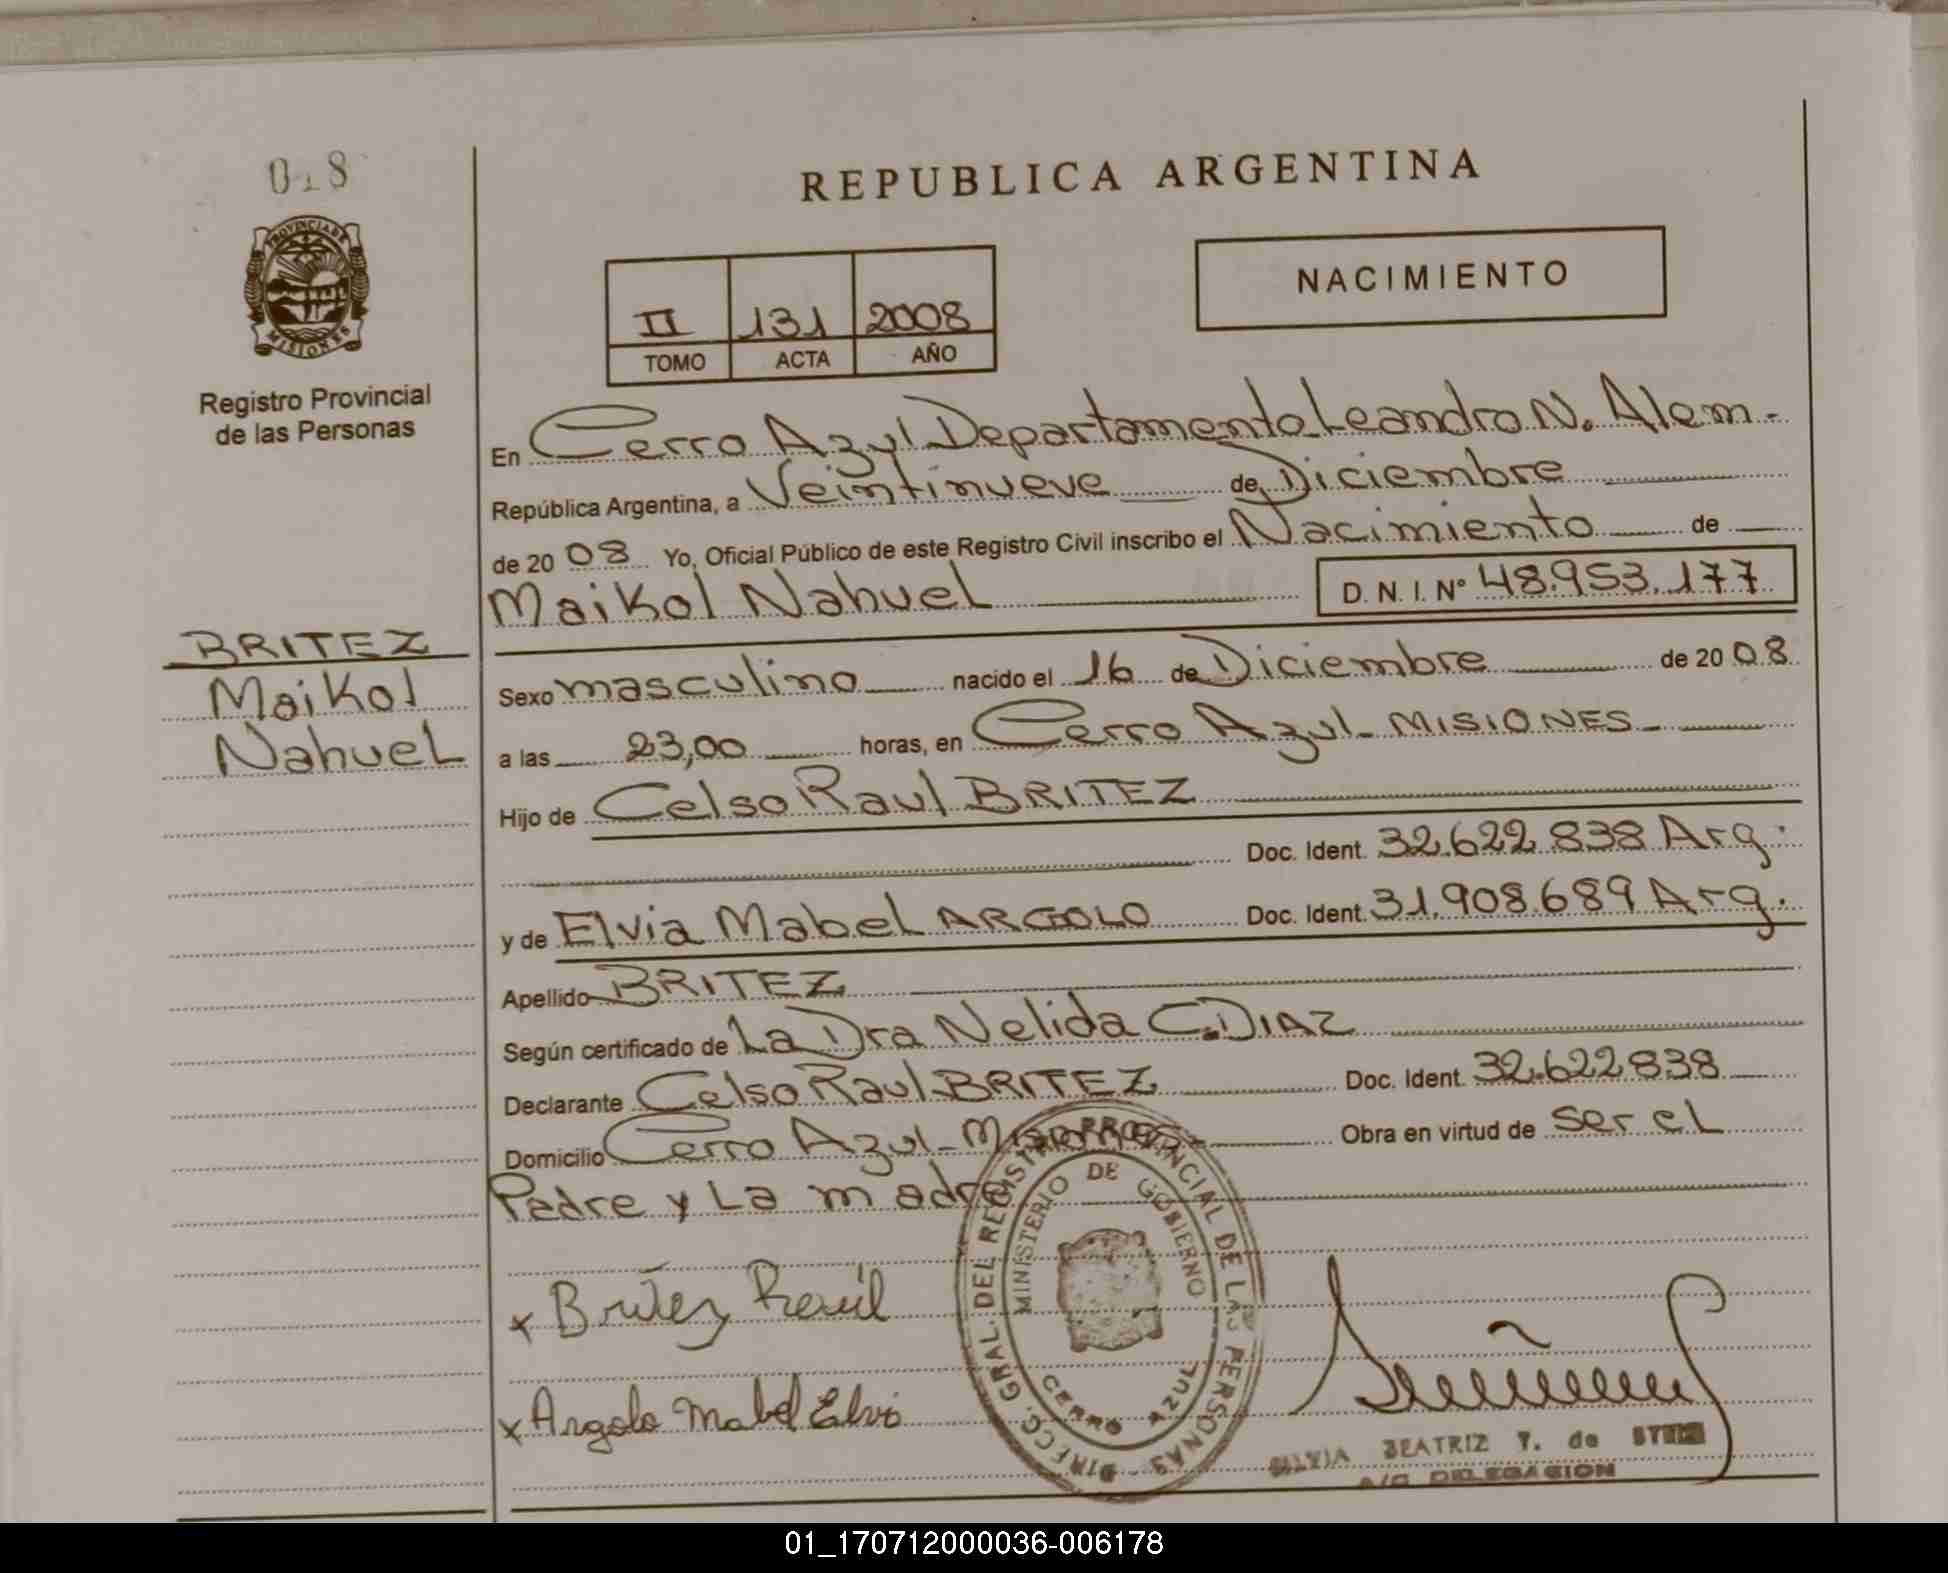 018
PROVINCIA DE
MISIONES
Registro Provincial
de las Personas
BRITEZ
Maikol
Nahuel
REPUBLICA ARGENTINA
II 131 2008
TOMO ACTA AÑO
NACIMIENTO
En Cerro Azul Departamento Leandro N. Alem.-
República Argentina, a Veintinueve de Diciembre
de 2008 Yo, Oficial Público de este Registro Civil inscribo el Nacimiento de
Maikol Nahuel D. N. I. Nº 48.953.177
Sexo masculino nacido el 16 de Diciembre de 2008
a las 23,00 horas, en Cerro Azul - MISIONES -
Hijo de Celso Raul BRITEZ
Doc. Ident. 32.622.838 Arg.
y de Elvia Mabel ARGOLO Doc. Ident. 31.908.689 Arg.
Apellido BRITEZ
Según certificado de La Dra Nelida C. DIAZ
Declarante Celso Raul BRITEZ Doc. Ident. 32.622838
Domicilio Cerro Azul - Misiones - Obra en virtud de ser el
Padre y La madre
DIRECC. GRAL. DEL REGISTRO PROVINCIAL DE LAS PERSONAS
MINISTERIO DE GOBIERNO
CERRO AZUL
x Britez Raúl
x Argolo Mabel Elvi
SILVIA BEATRIZ T. de
A/C DELEGACION
01_170712000036-006178